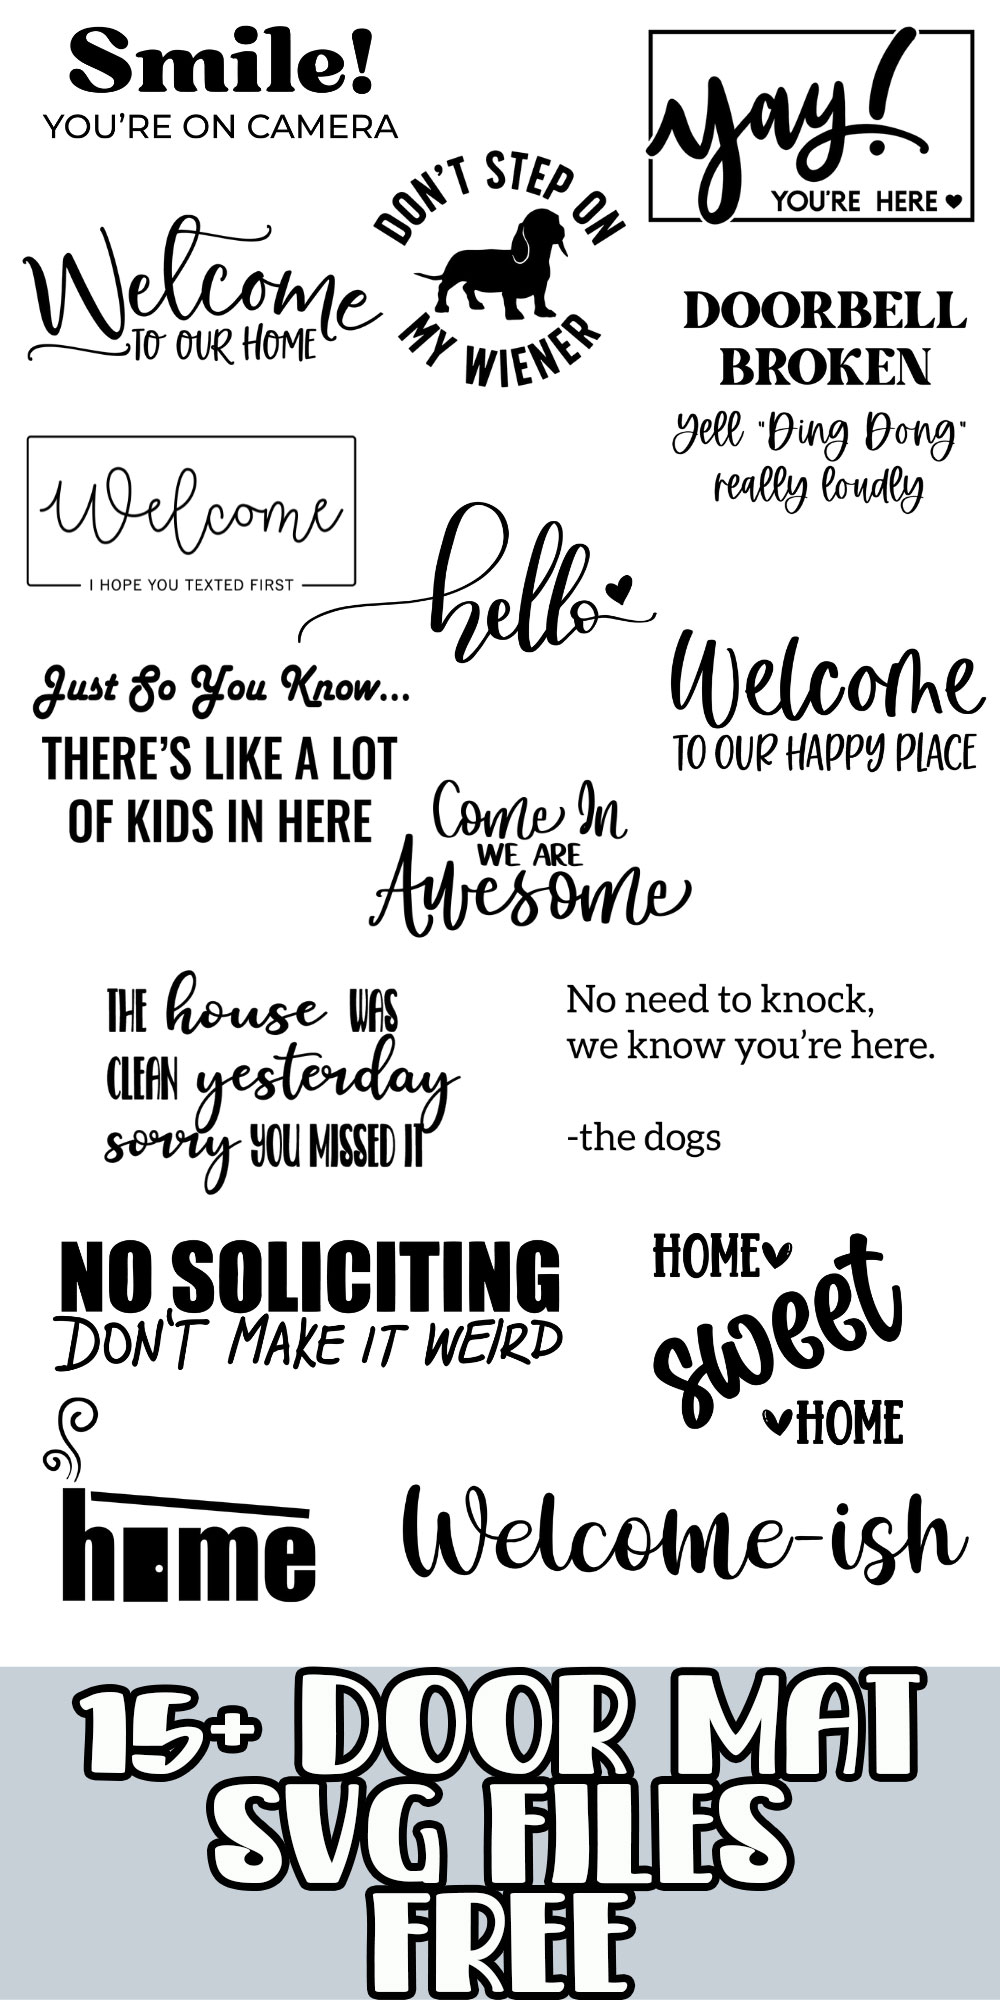 Smile!
YOU'RE ON CAMERA
yay!
YOU'RE HERE
DON'T STEP ON
MY WIENER
Welcome
TO OUR HOME
DOORBELL
BROKEN
Yell "Ding Dong"
really loudly
Welcome
I HOPE YOU TEXTED FIRST
hello
Just So You Know...
THERE'S LIKE A LOT
OF KIDS IN HERE
Welcome
TO OUR HAPPY PLACE
Come In
WE ARE
Awesome
THE house WAS
CLEAN yesterday
sorry YOU MISSED IT
No need to knock,
we know you're here.
-the dogs
NO SOLICITING
DON'T MAKE IT WEIRD
HOME
sweet
HOME
home
Welcome-ish
15+ DOOR MAT
SVG FILES
FREE